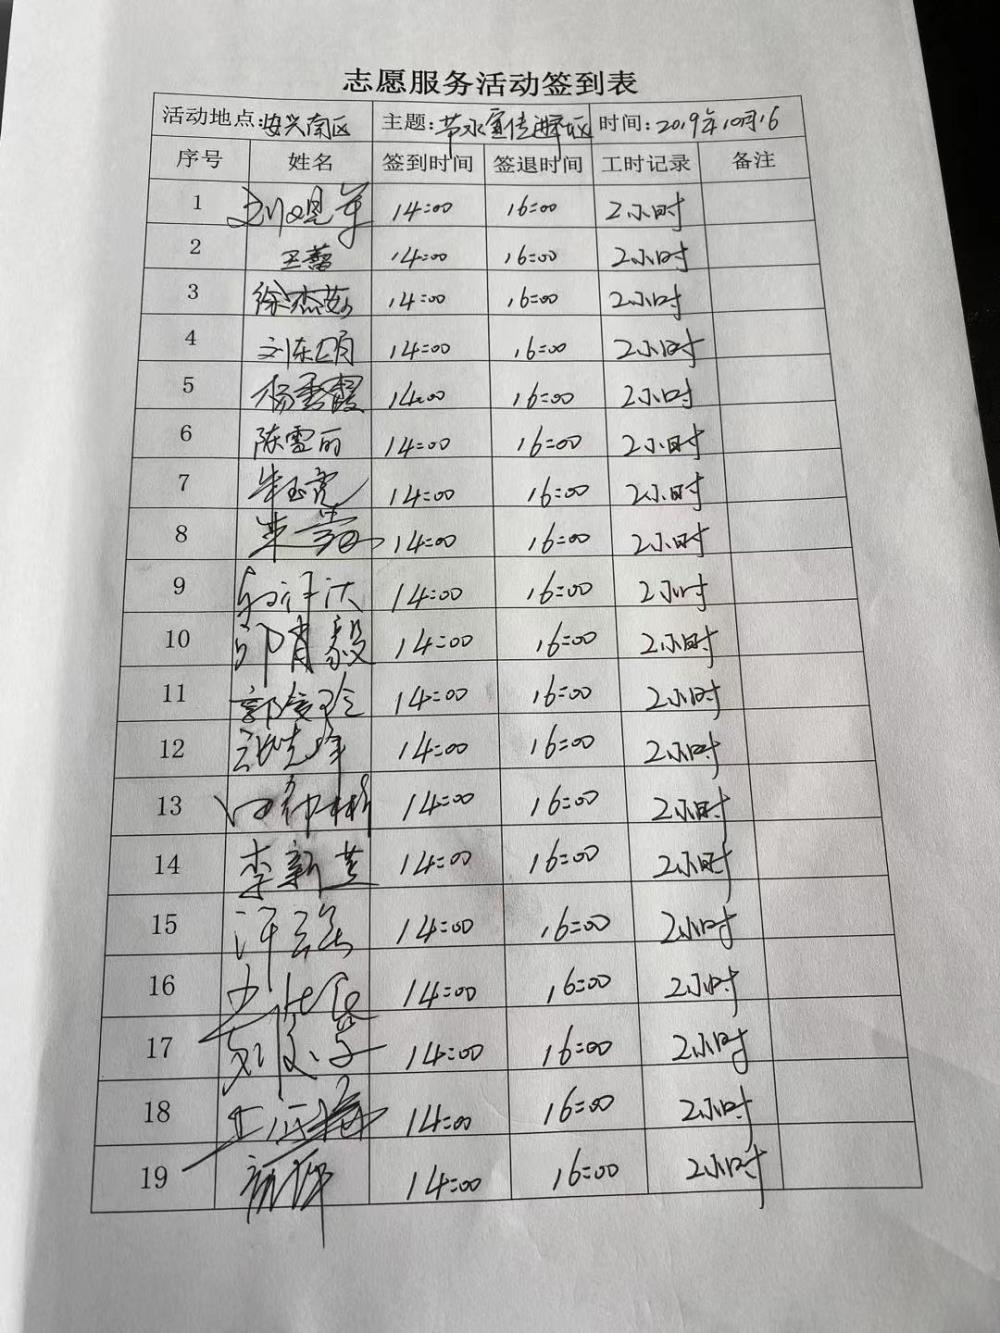 志愿服务活动签到表
活动地点:安兴南区 主题:节水宣传进社区 时间:2019年10月16
序号 姓名 签到时间 签退时间 工时记录 备注
1 14:00 16:00 2小时
2 王蕾 14:00 16:00 2小时
3 徐杰茹 14:00 16:00 2小时
4 刘东颂 14:00 16:00 2小时
5 杨秀霞 14:00 16:00 2小时
6 陈雪丽 14:00 16:00 2小时
7 朱玉亮 14:00 16:00 2小时
8 14:00 16:00 2小时
9 14:00 16:00 2小时
10 邱肖毅 14:00 16:00 2小时
11 14:00 16:00 2小时
12 14:00 16:00 2小时
13 14:00 16:00 2小时
14 李新芝 14:00 16:00 2小时
15 14:00 16:00 2小时
16 14:00 16:00 2小时
17 14:00 16:00 2小时
18 14:00 16:00 2小时
19 14:00 16:00 2小时